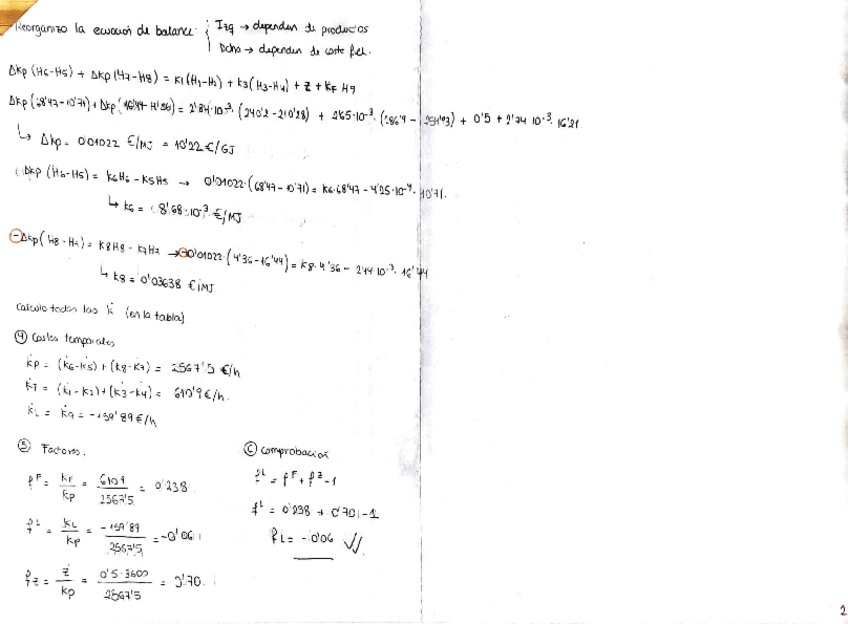 Reorganizo la ecuación de balance: { Izq → dependen de productos
Dcha → dependen de coste fuel.
Δkp (H6-H5) + Δkp (H7-H8) = k1 (H1-H2) + k3 (H3-H4) + Z + kF H9
Δkp (68'47-10'71) + Δkp (16'44- = 2'84·10⁻³ · (240'2-210'28) + 2'65·10⁻³ · (286'9 - + 0'5 + 2'74 10⁻³ · 16'21
↳ Δkp = 0'01022 €/MJ = 10'22 €/GJ
Δkp (H6-H5) = k6H6 - k5H5 → 0'01022·(68'47-10'71) = k6·68'47 - 4'25·10⁻⁴ · 10'71.
↳ k6 = 8'68·10⁻³ €/MJ
-Δkp (H8-H7) = k8H8 - k7H7 → -0'01022·(4'36-16'44) = k8·4'36 - 2'14·10⁻³ · 16'44
↳ k8 = 0'03638 €/MJ
Calculo todos los k̇ (en la tabla)
④ Costes temporales
k̇P = (k̇6-k̇5) + (k̇8-k̇7) = 2567'5 €/h
k̇F = (k̇1-k̇2) + (k̇3-k̇4) = 610'9 €/h.
k̇L = k̇9 = -159'89 €/h
⑤ Factores.
fF = kF/kp = 610'9/2567'5 = 0'238
fL = kL/kp = -159'89/2567'5 = -0'061
fZ = ż/kp = 0'5·3600/2567'5 = 0'70.
ⓒ Comprobación
fL = fF + fZ - 1
fL = 0'238 + 0'701 - 1
fL = -0'06 ✓✓
2